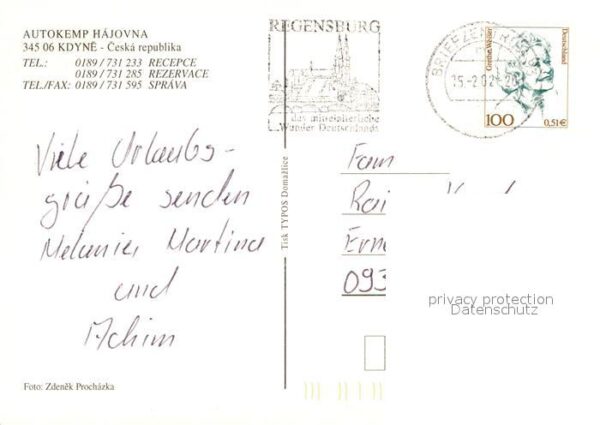 AUTOKEMP HÁJOVNA
345 06 KDYNĚ - Česká republika
TEL.: 0189 / 731 233 RECEPCE
0189 / 731 285 REZERVACE
TEL./FAX: 0189 / 731 595 SPRÁVA
REGENSBURG
das mittelalterliche
Wunder Deutschlands
BRIEFZENTRUM 93
Goethe, Weimar
Deutschland
100
0,51 €
Viele Urlaubs-
grüße senden
Melanie, Martina
und
Achim
Tisk TYPOS Domažlice
Fam
Rai
Erne
093
privacy protection
Datenschutz
Foto: Zdeněk Procházka